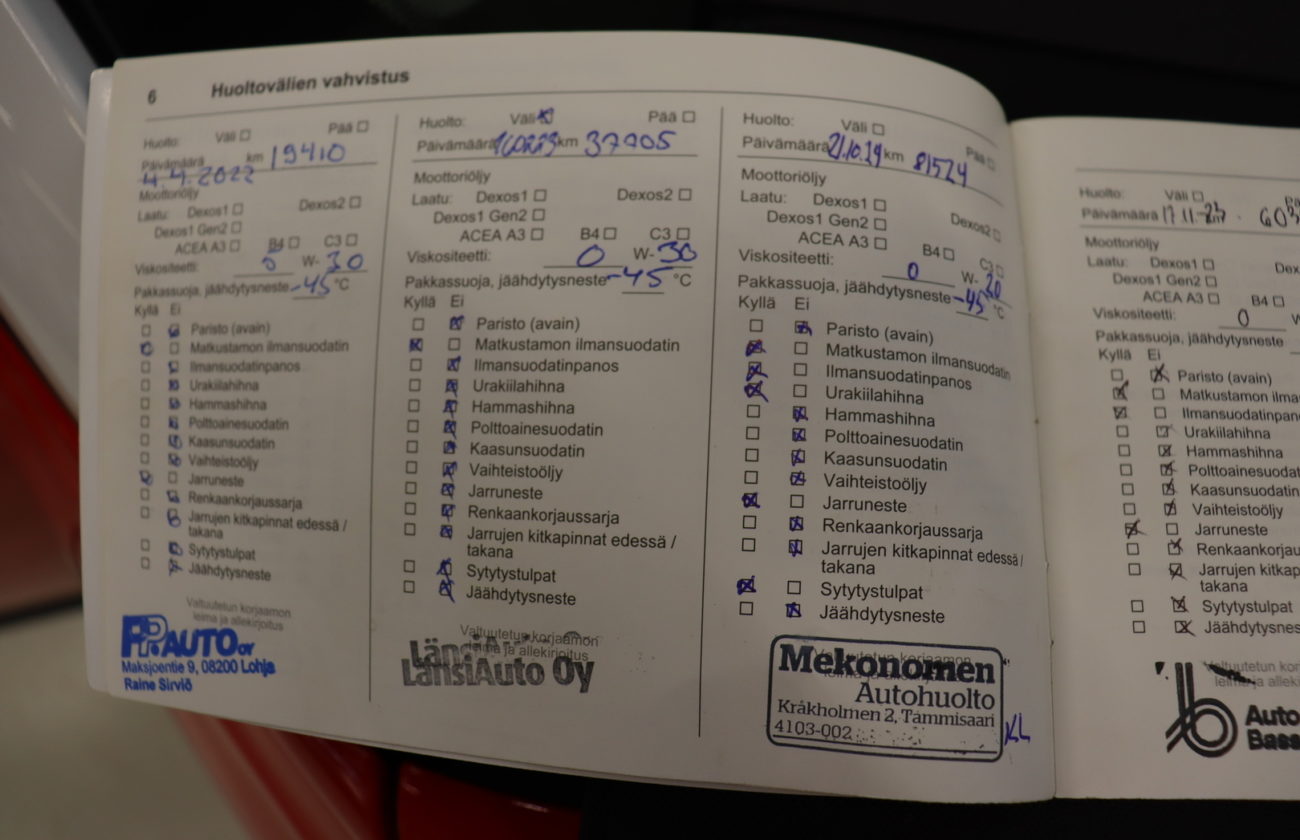 6 Huoltovälien vahvistus
Huolto: Väli ☐ Pää ☐
Päivämäärä 4.4.2022 km 19410
Moottoriöljy
Laatu: Dexos1 ☐ Dexos2 ☐
Dexos1 Gen2 ☐
ACEA A3 ☐ B4 ☐ C3 ☐
Viskositeetti: 5 W-30
Pakkassuoja, jäähdytysneste -45 °C
Kyllä Ei
☐ ☒ Paristo (avain)
☒ ☐ Matkustamon ilmansuodatin
☐ ☒ Ilmansuodatinpanos
☐ ☒ Urakiilahihna
☐ ☒ Hammashihna
☐ ☒ Polttoainesuodatin
☐ ☒ Kaasunsuodatin
☐ ☒ Vaihteistoöljy
☒ ☐ Jarruneste
☐ ☒ Renkaankorjaussarja
☐ ☒ Jarrujen kitkapinnat edessä /
takana
☐ ☒ Sytytystulpat
☐ ☒ Jäähdytysneste
Valtuutetun korjaamon
leima ja allekirjoitus
AUTO OY
Maksjoentie 9, 08200 Lohja
Raine Sirviö
Huolto: Väli ☒ Pää ☐
Päivämäärä km
Moottoriöljy
Laatu: Dexos1 ☐ Dexos2 ☐
Dexos1 Gen2 ☐
ACEA A3 ☐ B4 ☐ C3 ☐
Viskositeetti: 0 W-30
Pakkassuoja, jäähdytysneste -45 °C
Kyllä Ei
☐ ☒ Paristo (avain)
☒ ☐ Matkustamon ilmansuodatin
☐ ☒ Ilmansuodatinpanos
☐ ☒ Urakiilahihna
☐ ☒ Hammashihna
☐ ☒ Polttoainesuodatin
☐ ☒ Kaasunsuodatin
☐ ☒ Vaihteistoöljy
☐ ☒ Jarruneste
☐ ☒ Renkaankorjaussarja
☐ ☒ Jarrujen kitkapinnat edessä /
takana
☐ ☒ Sytytystulpat
☐ ☒ Jäähdytysneste
Valtuutetun korjaamon
leima ja allekirjoitus
LänsiAuto Oy
Huolto: Väli ☐ Pää ☐
Päivämäärä 21.10.24 km 81524
Moottoriöljy
Laatu: Dexos1 ☐ Dexos2 ☐
Dexos1 Gen2 ☐
ACEA A3 ☐ B4 ☐ C3 ☐
Viskositeetti: 0 W-20
Pakkassuoja, jäähdytysneste -45 °C
Kyllä Ei
☐ ☒ Paristo (avain)
☒ ☐ Matkustamon ilmansuodatin
☒ ☐ Ilmansuodatinpanos
☒ ☐ Urakiilahihna
☐ ☒ Hammashihna
☐ ☒ Polttoainesuodatin
☐ ☒ Kaasunsuodatin
☐ ☒ Vaihteistoöljy
☒ ☐ Jarruneste
☐ ☒ Renkaankorjaussarja
☐ ☒ Jarrujen kitkapinnat edessä /
takana
☒ ☐ Sytytystulpat
☐ ☒ Jäähdytysneste
Mekonomen
Autohuolto
Kråkholmen 2, Tammisaari
4103-002
KL
Huolto: Väli ☐
Päivämäärä 17.11.23
Moottoriöljy
Laatu: Dexos1 ☐ Dex
Dexos1 Gen2 ☐
ACEA A3 ☐ B4 ☐
Viskositeetti: 0
Pakkassuoja, jäähdytysneste
Kyllä Ei
☐ ☒ Paristo (avain)
☒ ☐ Matkustamon ilma
☒ ☐ Ilmansuodatinpan
☐ ☒ Urakiilahihna
☐ ☒ Hammashihna
☐ ☒ Polttoainesuodat
☐ ☒ Kaasunsuodatin
☐ ☒ Vaihteistoöljy
☒ ☐ Jarruneste
☐ ☒ Renkaankorjau
☐ ☒ Jarrujen kitkap
takana
☐ ☒ Sytytystulpat
☐ ☒ Jäähdytysnes
Auto
Bass